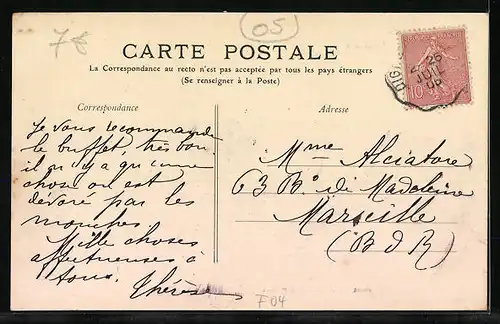 78
05
CARTE POSTALE
La Correspondance au recto n'est pas acceptée par tous les pays étrangers
(Se renseigner à la Poste)
Correspondance
Adresse
Je vous recommande
le buffet, très bon
il n'y a qu'une
chose on est
dévoré par les
mouches
Mille choses
affectueuses à
tous. Thérèse
Mme Alciatore
63 Bd de Madeleine
Marseille
(B d R)
10
26
JUIL
F04